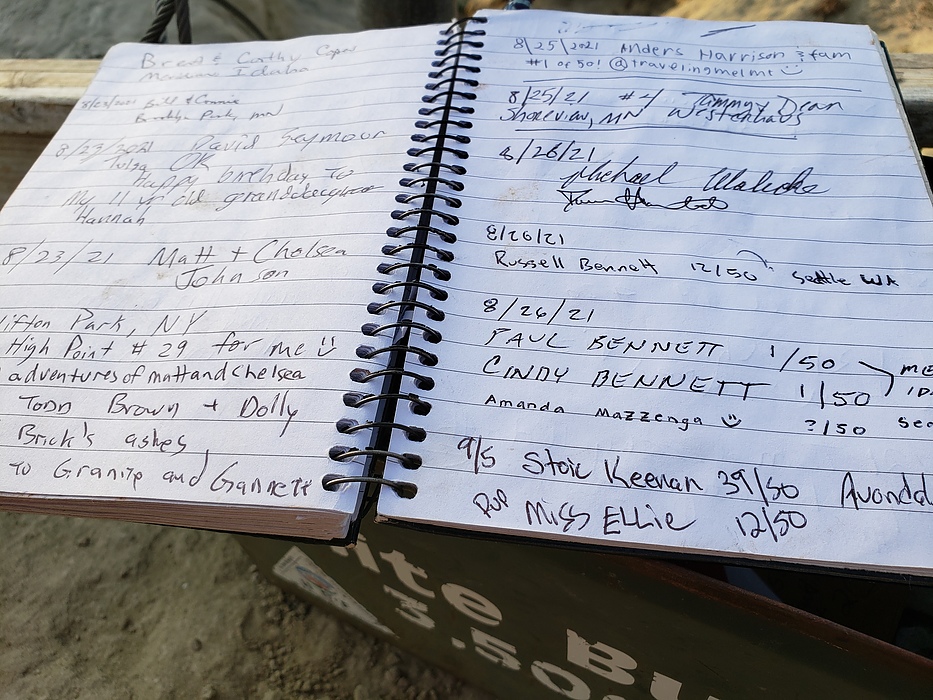 Bret & Cathy
Idaho
8/23/2021 Bill & Connie
Brooklyn Park, MN
8/23/2021 David Seymour
Tulsa OK
happy birthday to
My 11 yr old granddaughter
Hannah
8/23/21 Matt + Chelsea
Johnson
lifton Park, NY
High Point # 29 for me
adventures of mattandchelsea
Todd Brown + Dolly
Brick's ashes,
to Granite and Gannett
8/25/2021 Anders Harrison & fam
#1 of 50! @travelingmelmt
8/25/21 #4 Jimmy Dean
Shoreview, MN Westenhaus
8/26/21
Michael
8/26/21
Russell Bennett 12/50 Seattle WA
8/26/21
PAUL BENNETT 1/50
CINDY BENNETT 1/50
Amanda Mazzenga ?/50
9/5 Stoic Keenan 39/50 Avondal
Pup Miss Ellie 12/50
ite Bu
3,50